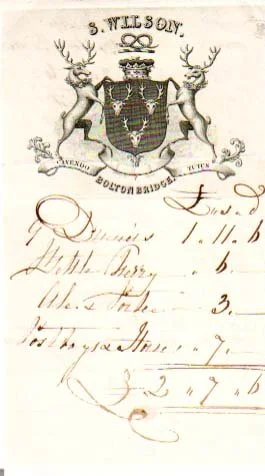 S. WILSON.
CAVENDO TUTUS
BOLTON BRIDGE.
£ s d
9 Dinners 1.11.6
Bottle Sherry . 6 .
Ale & Porter 3.
Postboys & Horses . 7.
£ 2 . 7 . 6